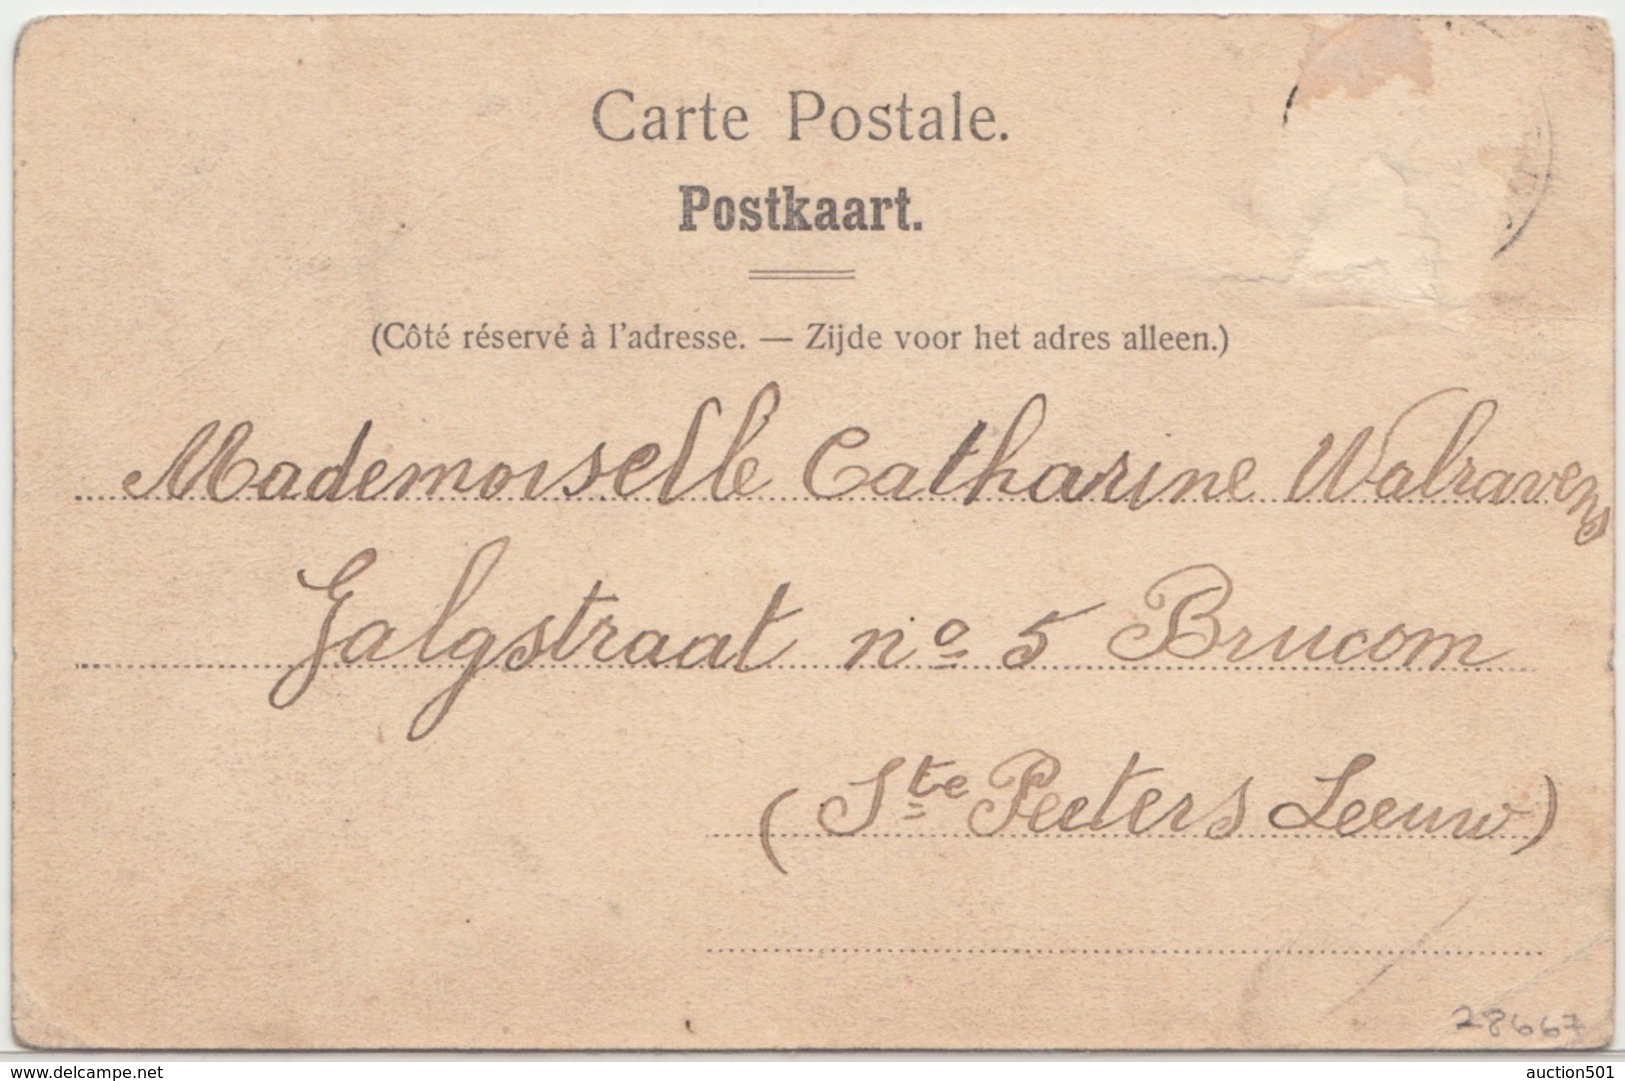 Carte Postale.
Postkaart.
(Côté réservé à l'adresse. — Zijde voor het adres alleen.)
Mademoiselle Catharine Walravens
Galgstraat nº 5 Brucom
(Ste Peeters Leeuw)
28667
www.delcampe.net
auction501